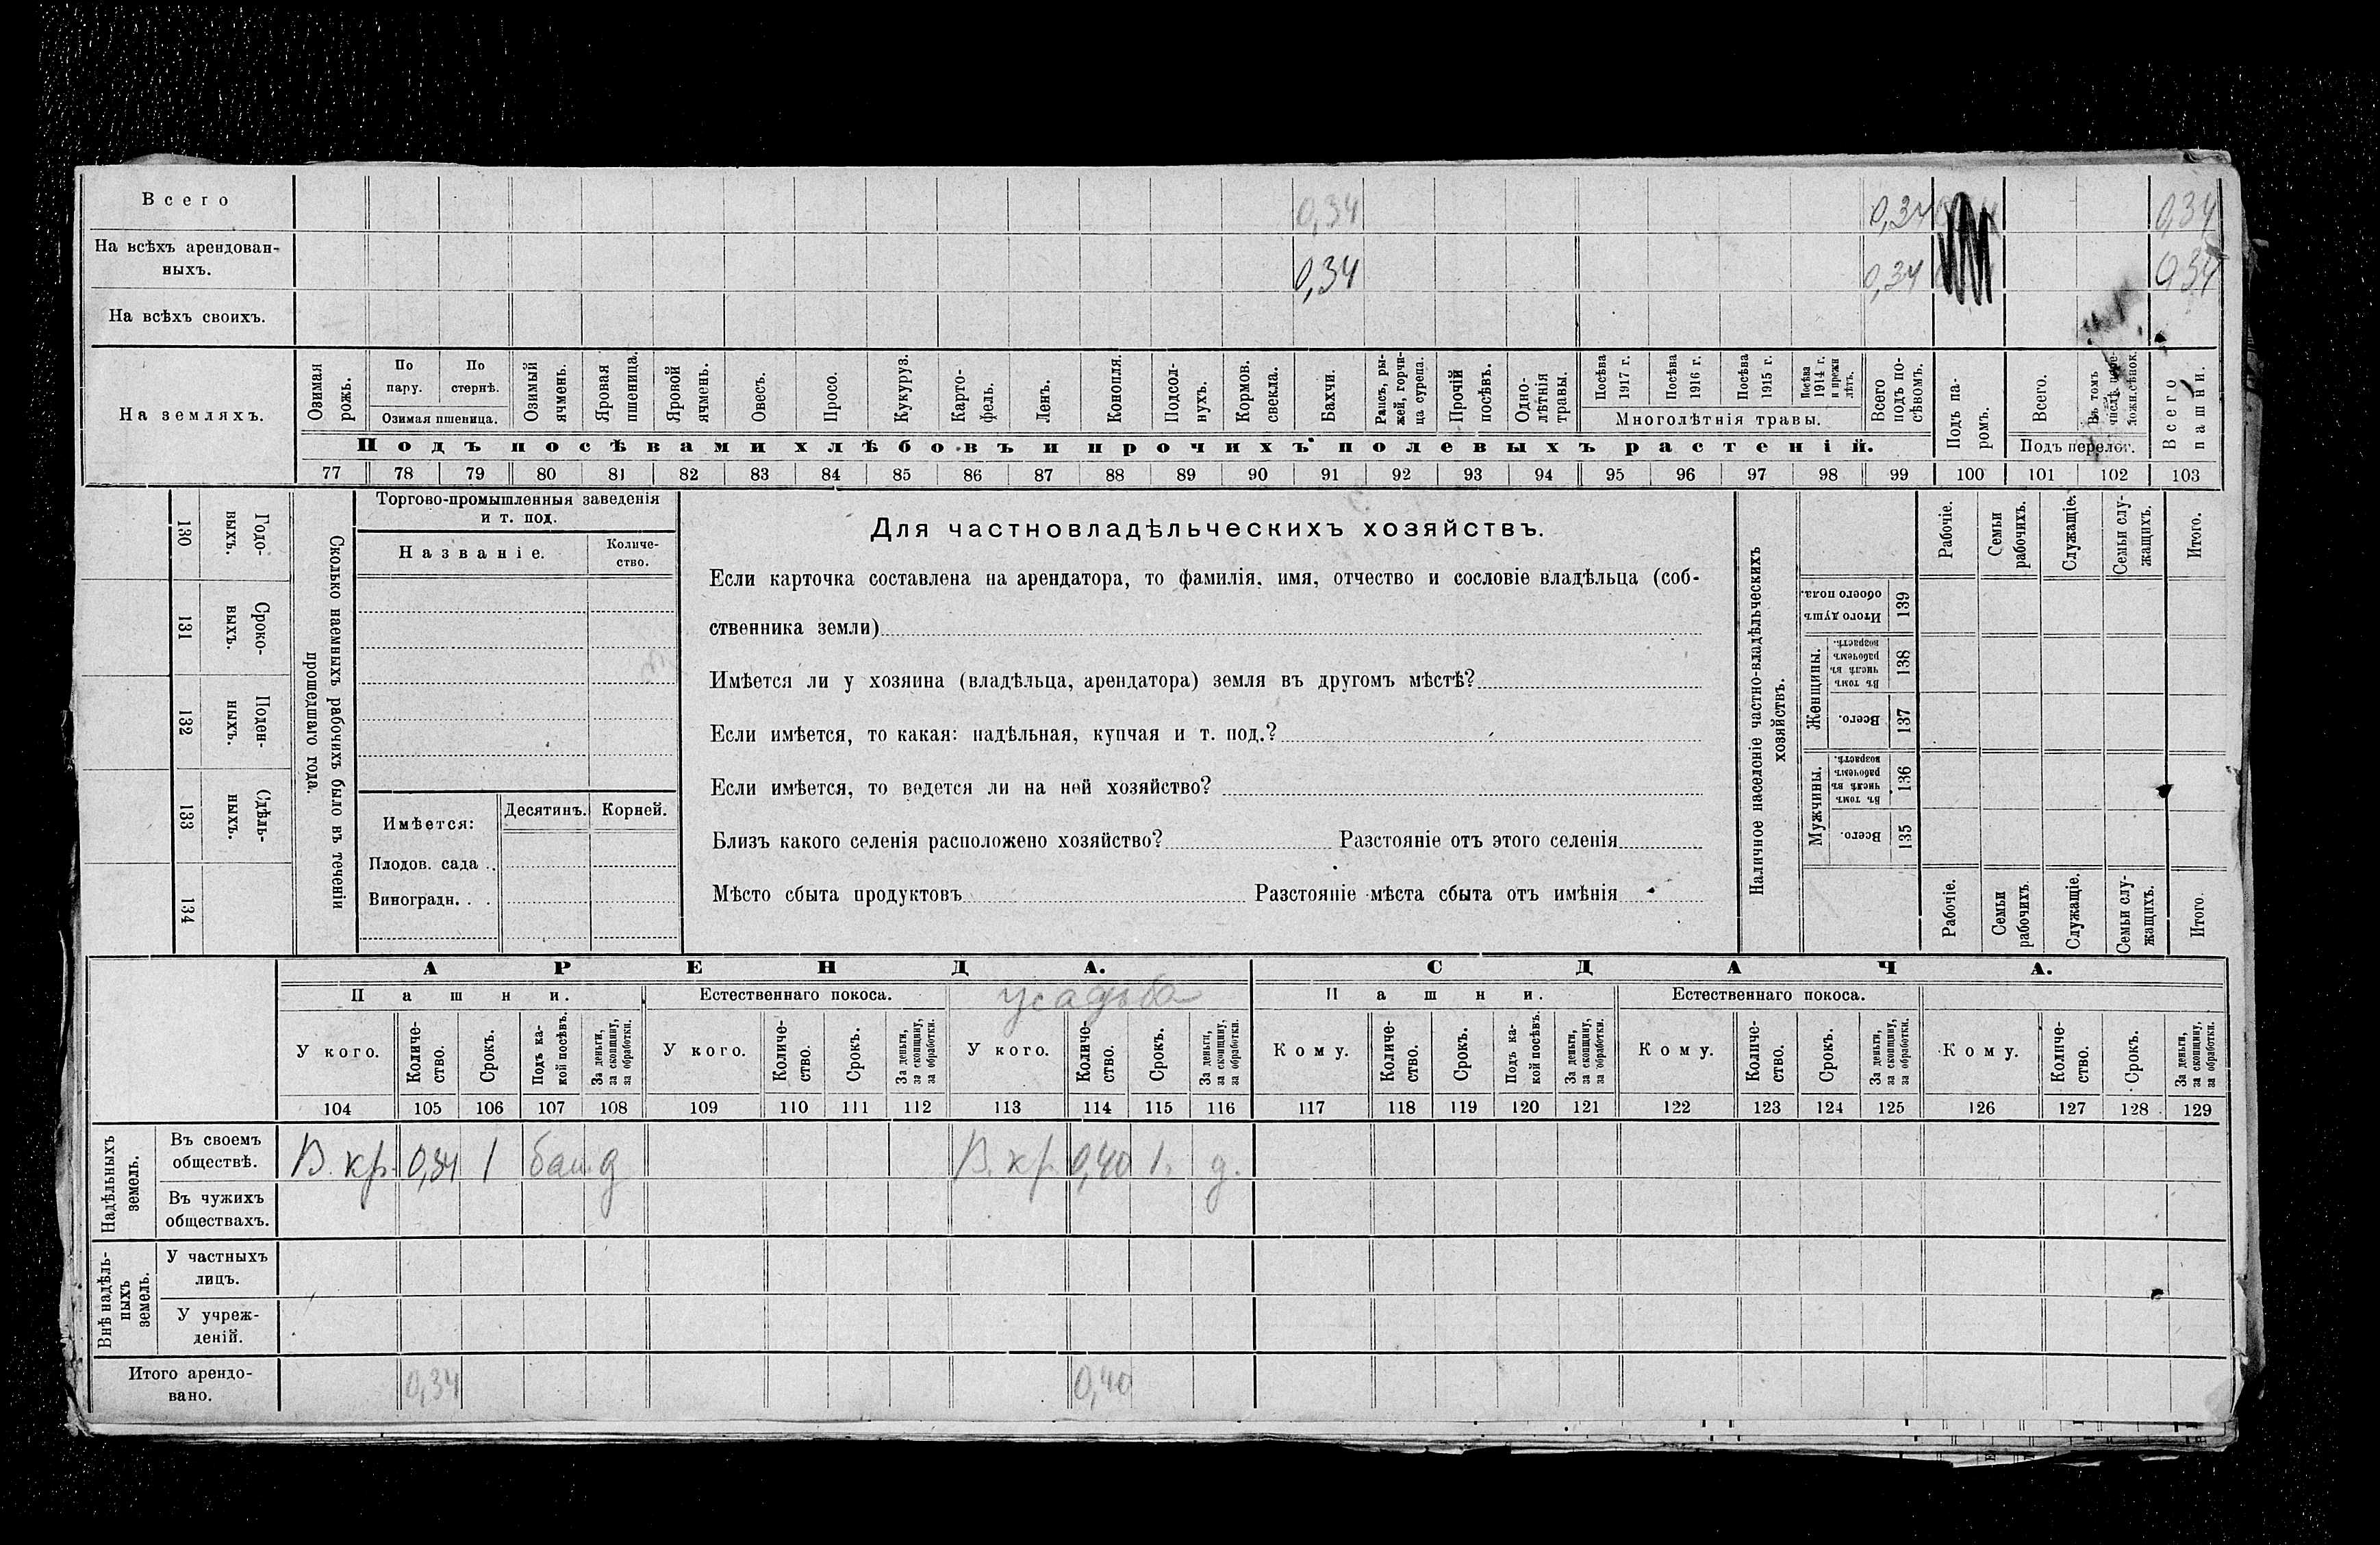 Всего 0,34 0,34 0,34
На всѣхъ арендован-
ныхъ. 0,34 0,34 0,34
На всѣхъ своихъ.
На земляхъ.
Озимая рожь.
По пару.
По стернѣ.
Озимая пшеница.
Озимый ячмень.
Яровая пшеница.
Яровой ячмень.
Овесъ.
Просо.
Кукуруз.
Карто-
фель.
Ленъ.
Конопля.
Подсол-
нухъ.
Кормов.
свекла.
Бахчи.
Рапсъ, ры-
жей, горчи-
ца сурепа.
Прочій
посѣвъ.
Одно-
лѣтнія
травы.
Посѣва 1917 г.
Посѣва 1916 г.
Посѣва 1915 г.
Посѣва
1914 г.
и прежн
лѣтъ.
Многолѣтнія травы.
Всего
подъ по-
сѣвомъ.
Подъ па-
ромъ.
Всего.
Въ томъ
числѣ
Подъ перелог.
Всего
пашни.
Подъ посѣвами хлѣбовъ и прочихъ полевыхъ растеній.
77 78 79 80 81 82 83 84 85 86 87 88 89 90 91 92 93 94 95 96 97 98 99 100 101 102 103
130 Годо-
выхъ.
131 Сроко-
выхъ.
132 Поден-
ныхъ.
133 Сдѣль-
ныхъ.
134
Сколько наемныхъ рабочихъ было въ теченіи
прошедшаго года.
Торгово-промышленныя заведенія
и т. под.
Названіе.
Количе-
ство.
Имѣется: Десятинъ. Корней.
Плодов. сада ..
Виноградн. . .
Для частновладѣльческихъ хозяйствъ.
Если карточка составлена на арендатора, то фамилія, имя, отчество и сословіе владѣльца (соб-
ственника земли)
Имѣется ли у хозяина (владѣльца, арендатора) земля въ другомъ мѣстѣ?
Если имѣется, то какая: надѣльная, купчая и т. под.?
Если имѣется, то ведется ли на ней хозяйство?
Близъ какого селенія расположено хозяйство? Разстояніе отъ этого селенія
Мѣсто сбыта продуктовъ Разстояніе мѣста сбыта отъ имѣнія
Наличное населеніе частно-владѣльческихъ
хозяйствъ.
Рабочіе.
Семьи
рабочихъ.
Служащіе.
Семьи слу-
жащихъ.
Итого.
Итого душъ
обоего пола. 139
Женщины.
Въ томъ
числѣ въ
рабочемъ
возрастѣ. 138
Всего. 137
Мужчины.
Въ томъ
числѣ въ
рабочемъ
возрастѣ. 136
Всего. 135
Рабочіе.
Семьи
рабочихъ.
Служащіе.
Семьи слу-
жащихъ.
Итого.
АРЕНДА. СДАЧА.
Пашни. Естественнаго покоса. усадьба Пашни. Естественнаго покоса.
У кого.
Количе-
ство.
Срокъ.
Подъ ка-
кой посѣвъ.
За деньги,
за скопщину,
за обработки.
У кого.
Количе-
ство.
Срокъ.
За деньги,
за скопщину,
за обработки.
У кого.
Количе-
ство.
Срокъ.
За деньги,
за скопщину,
за обработки.
Кому.
Количе-
ство.
Срокъ.
Подъ ка-
кой посѣвъ.
За деньги,
за скопщину,
за обработки.
Кому.
Количе-
ство.
Срокъ.
За деньги,
за скопщину,
за обработки.
Кому.
Количе-
ство.
Срокъ.
За деньги,
за скопщину,
за обработки.
104 105 106 107 108 109 110 111 112 113 114 115 116 117 118 119 120 121 122 123 124 125 126 127 128 129
Надѣльныхъ
земель.
Въ своемъ
обществѣ. В. кр. 0,34 1 бах. д В. кр. 0,40 1. д.
Въ чужихъ
обществахъ.
Внѣ надѣль-
ныхъ
земель.
У частныхъ
лицъ.
У учреж-
деній.
Итого арендо-
вано. 0,34 0,40